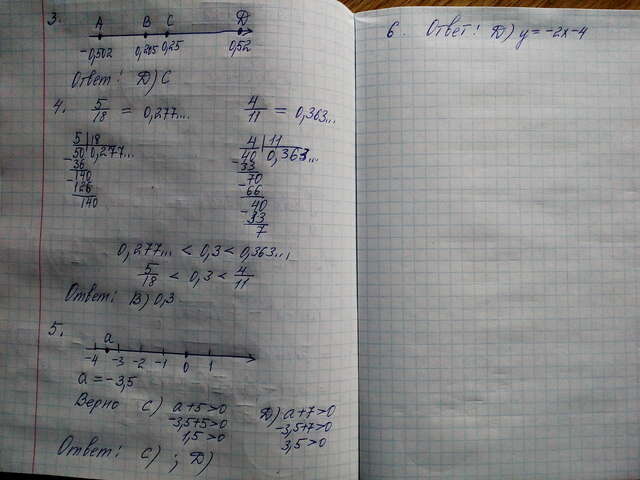 3.
A B C D
-0,502 0,205 0,25 0,52
Ответ: D) C
4. 5/18 = 0,277... 4/11 = 0,363...
5 | 18
50 | 0,277...
- 36
140
- 126
140
4 | 11
40 | 0,363...
- 33
70
- 66
40
- 33
7
0,277... < 0,3 < 0,363...,
5/18 < 0,3 < 4/11
Ответ: B) 0,3
5.
a
-4 -3 -2 -1 0 1
a = -3,5
Верно C) a+5>0 D) a+7>0
-3,5+5>0 -3,5+7>0
1,5>0 3,5>0
Ответ: C) ; D)
6. Ответ: D) y = -2x-4